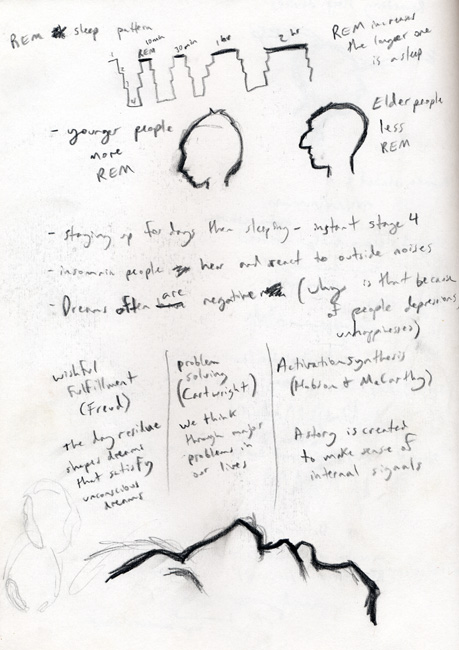 REM sleep pattern
10min
REM
30min
1 hr
2 hr
1
2
3
4
REM increases
the longer one
is asleep
- younger people
more
REM
Elder people
less
REM
- staying up for days then sleeping - instant stage 4
- insomnia people hear and react to outside noises
- Dreams often are negative (why is that because
of people depressions,
unhappinesses)
wishful
fulfillment
(Freud)
the day residue
shapes dreams
that satisfy
unconscious
dreams
problem
solving
(Cartwright)
we think
through major
problems in
our lives
Activation synthesis
(Hobson & McCarthy)
A story is created
to make sense of
internal signals